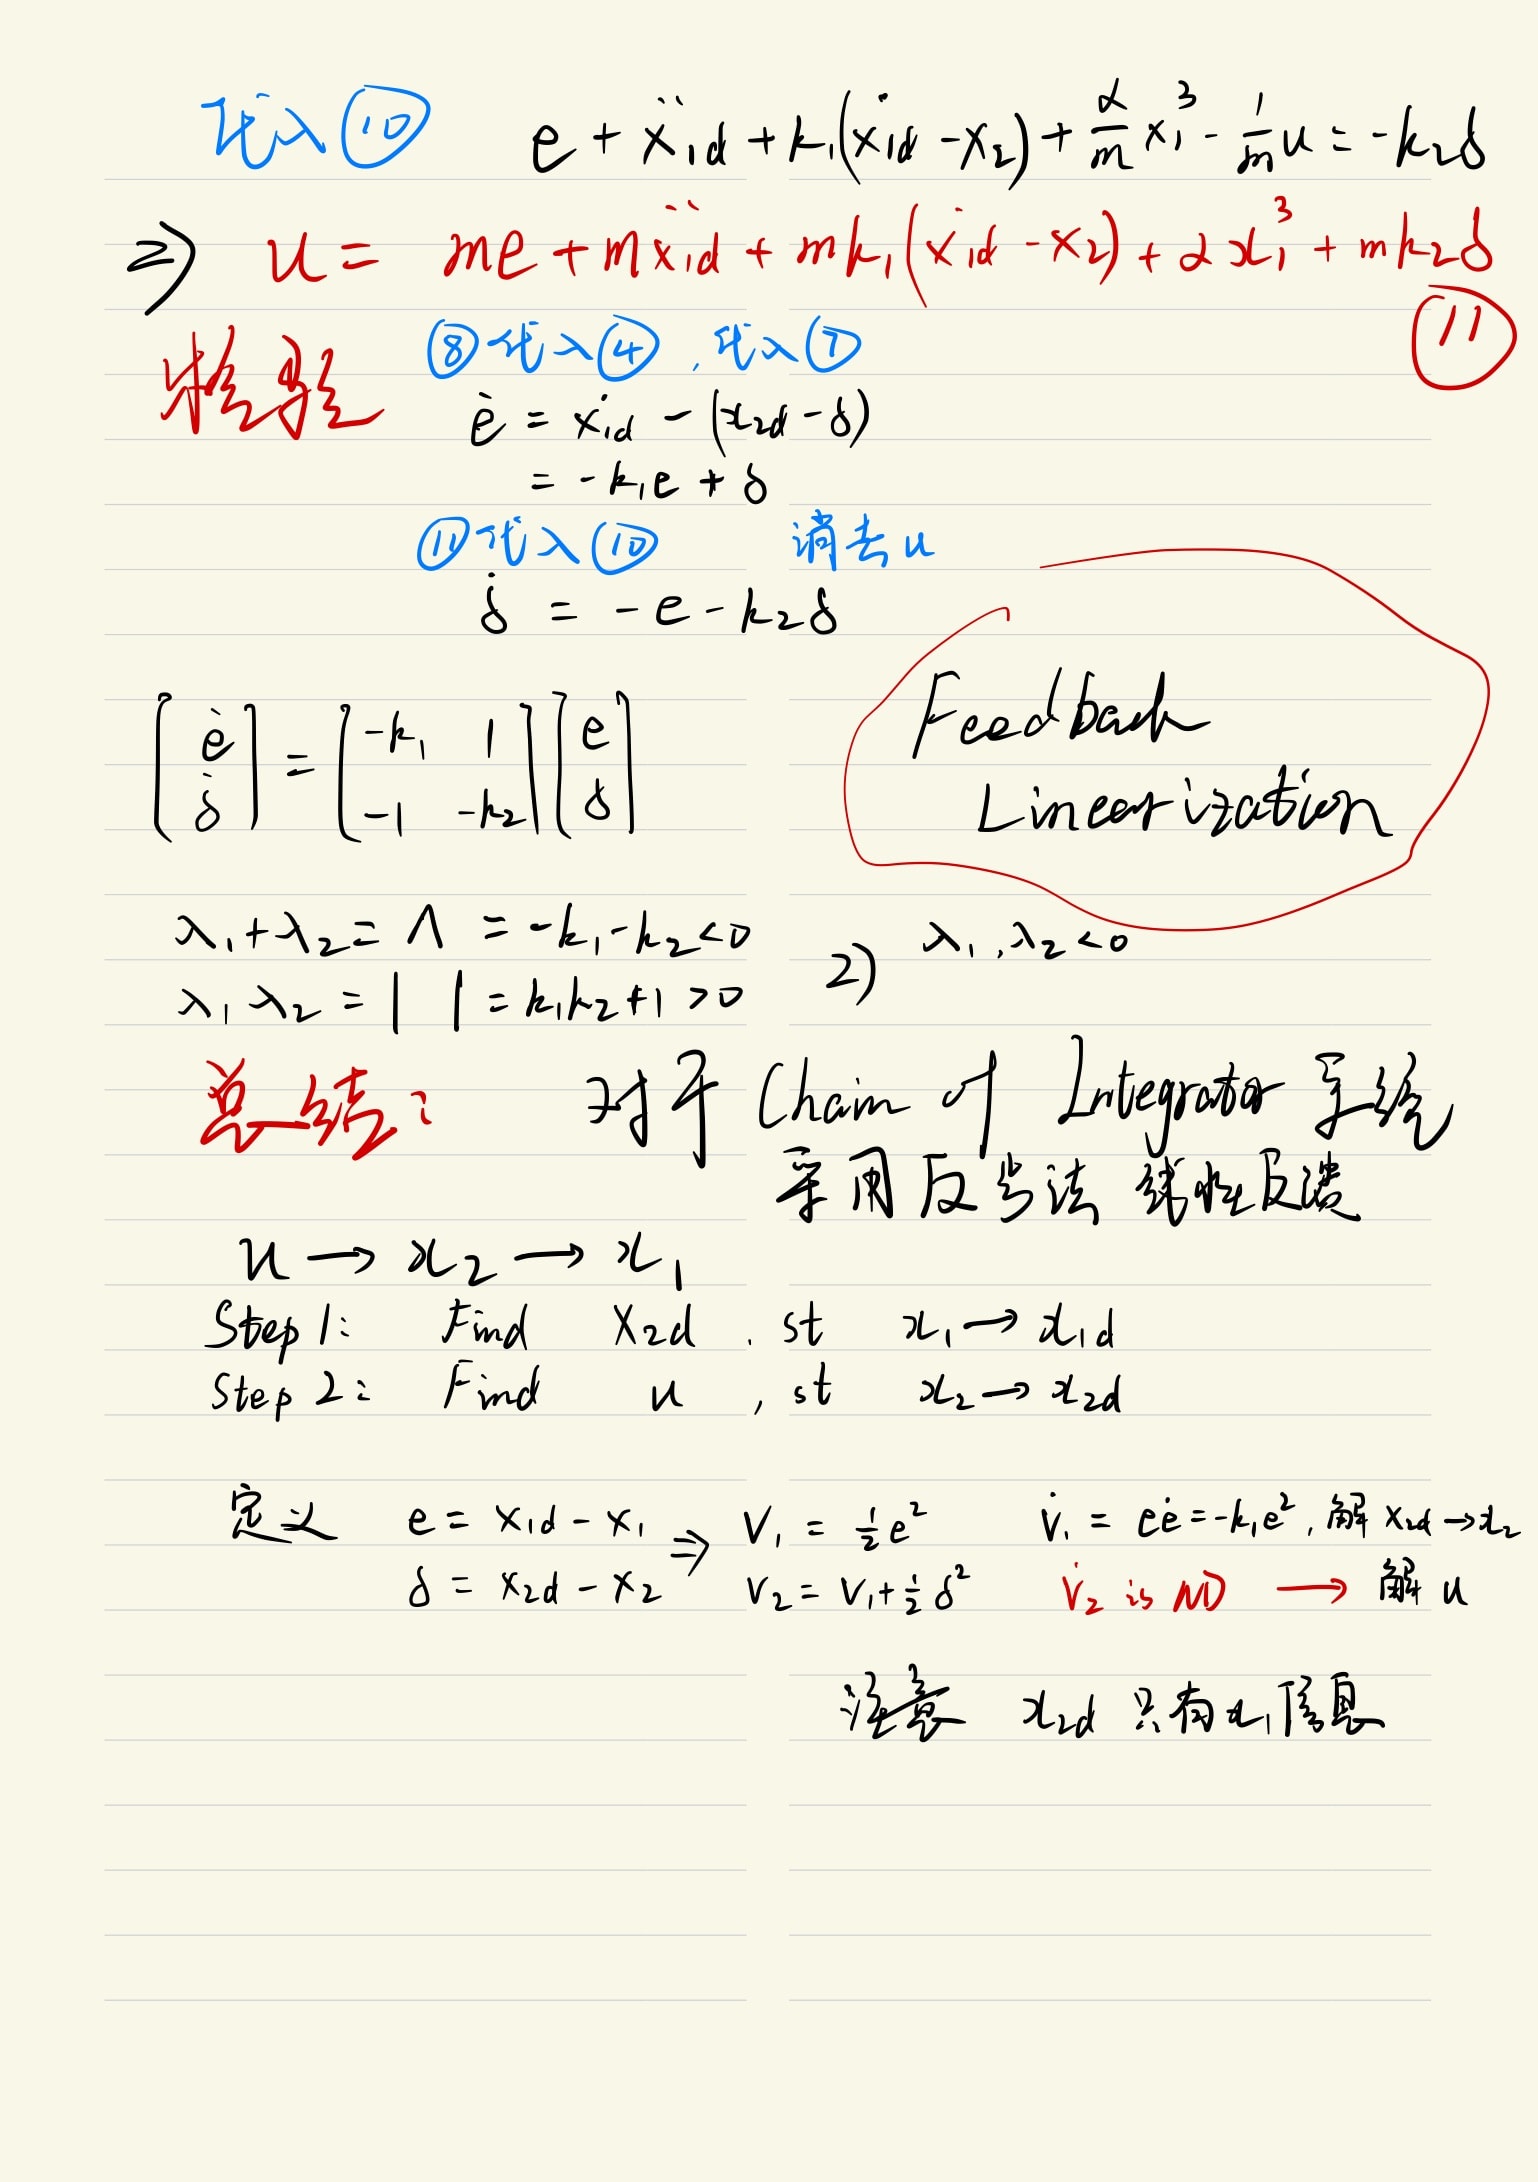 代入⑩ e + ẍ₁d + k₁(ẋ₁d - x₂) + α/m x₁³ - 1/m u = -k₂δ
⇒ u = me + mẍ₁d + mk₁(ẋ₁d - x₂) + αx₁³ + mk₂δ
⑪
检验 ⑧代入④,代入⑦
ė = ẋ₁d - (x₂d - δ)
= -k₁e + δ
⑪代入⑩ 消去u
δ̇ = -e - k₂δ
[ė δ̇] = [-k₁ 1 -1 -k₂] [e δ]
Feedback
Linearization
λ₁+λ₂ = Λ = -k₁-k₂<0
λ₁λ₂ = | | = k₁k₂+1 >0
⇒) λ₁,λ₂<0
总结: 对于 Chain of Integrator 系统
采用反步法 线性反馈
u → x₂ → x₁
Step 1: Find x₂d, st x₁ → x₁d
Step 2: Find u, st x₂ → x₂d
定义 e = x₁d - x₁ ⇒ V₁ = ½e² V̇₁ = eė = -k₁e², 解 x₂d → x₂
δ = x₂d - x₂ V₂ = V₁+½δ² V̇₂ is ND → 解 u
注意 x₂d 只有x₁信息